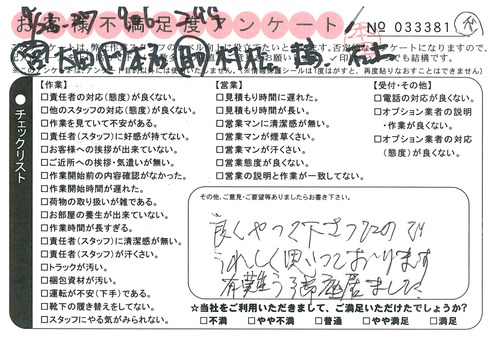 お客様不満足度アンケート
No 033381
チェックリスト
【作業】
□責任者の対応(態度)が良くない。
□他のスタッフの対応(態度)が良くない。
□作業を見ていて不安がある。
□責任者(スタッフ)に好感が持てない。
□お客様への挨拶が出来ていない。
□ご近所への挨拶・気遣いが無い。
□作業開始前の内容確認がなかった。
□作業開始時間が遅れた。
□荷物の取り扱いが雑である。
□お部屋の養生が出来ていない。
□作業時間が長すぎる。
□責任者(スタッフ)に清潔感が無い。
□責任者(スタッフ)が汗くさい。
□トラックが汚い。
□梱包資材が汚い。
□運転が不安(下手)である。
□靴下の履き替えをしてない。
□スタッフにやる気がみられない。
【営業】
□見積もり時間に遅れた。
□見積もり時間が長い。
□営業マンに清潔感が無い。
□営業マンが煙草くさい。
□営業マンが汗くさい。
□営業態度が良くない。
□営業の説明と作業が一致してない。
【受付・その他】
□電話の対応が良くない。
□オプション業者の説明
・作業が良くない。
□オプション業者の対応
(態度)が良くない。
その他、ご意見・ご要望等ありましたらお書き下さい。
良くやって下さったので
うれしく思っております
有難うございました
☆当社をご利用いただきまして、ご満足いただけたでしょうか?
□不満 □やや不満 □普通 □やや満足 □満足